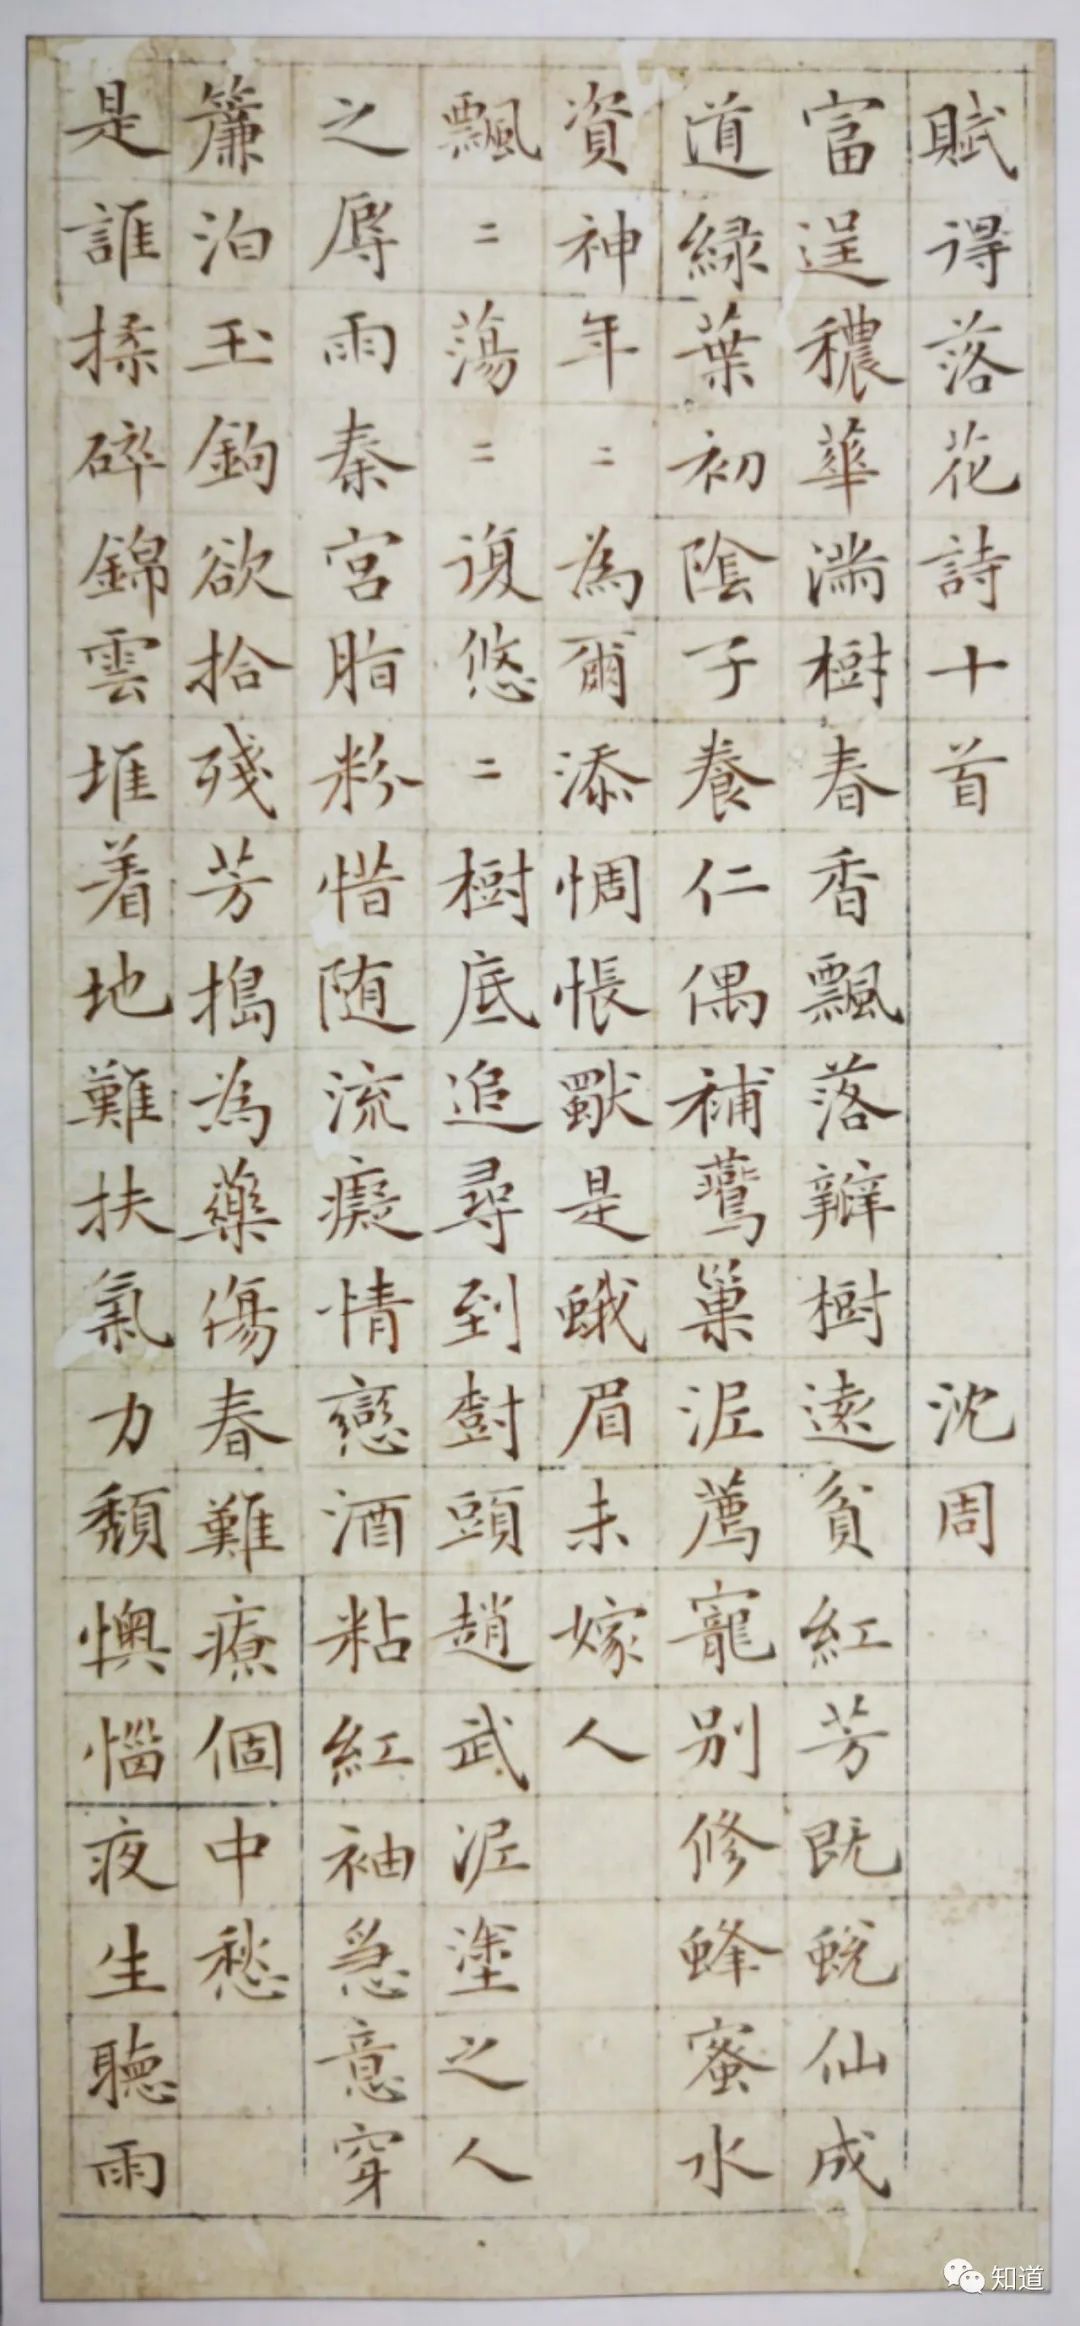 賦得落花詩十首 沈周
富逞穠華滿樹春香飄落瓣樹逺貧紅芳既蜕仙成
道緑葉初陰子養仁偶補鷰巢泥薦寵别修蜂蜜水
資神年〻為爾添惆悵獨是蛾眉未嫁人
飄〻蕩〻復悠〻樹底追尋到樹頭趙武泥塗之人
之辱雨秦宮脂粉惜随流癡情戀酒粘紅袖急意穿
簾泊玉鉤欲拾殘芳搗為藥傷春難療個中愁
是誰揉碎錦雲堆着地難扶氣力頹懊惱夜生聽雨
知道